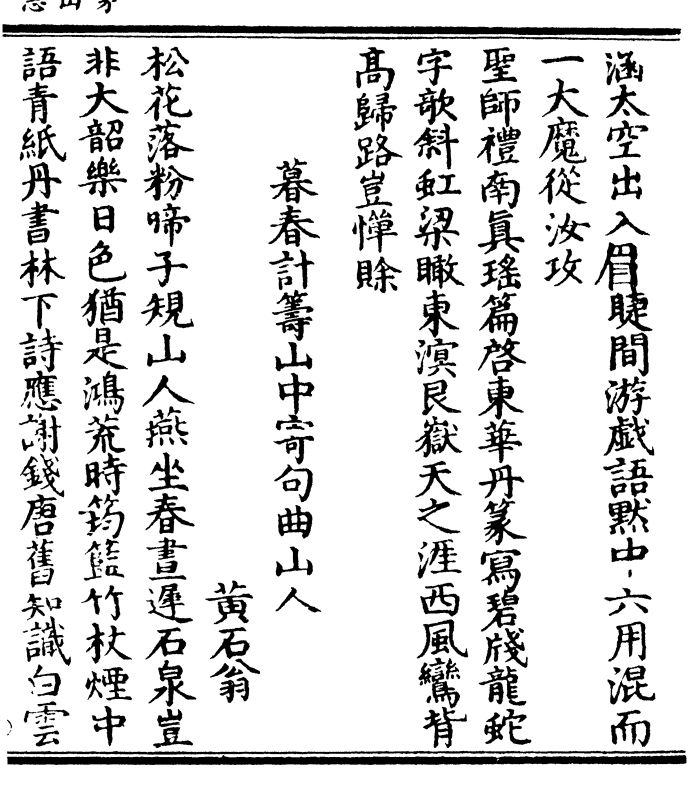 涵太空出入眉睫間游戲語默中六用混而
一大魔從汝攻
聖師禮南真瑤篇啓東華丹篆寫碧牋龍蛇
字歌斜虹梁瞰東溟艮嶽天之涯西風鸞背
高歸路豈憚賖
暮春計籌山中寄句曲山人
黃石翁
松花落粉啼子規山人燕坐春晝遲石泉豈
非大韶樂日色猶是鴻荒時筠籃竹杖煙中
語青紙丹書林下詩應謝錢唐舊知識白雲